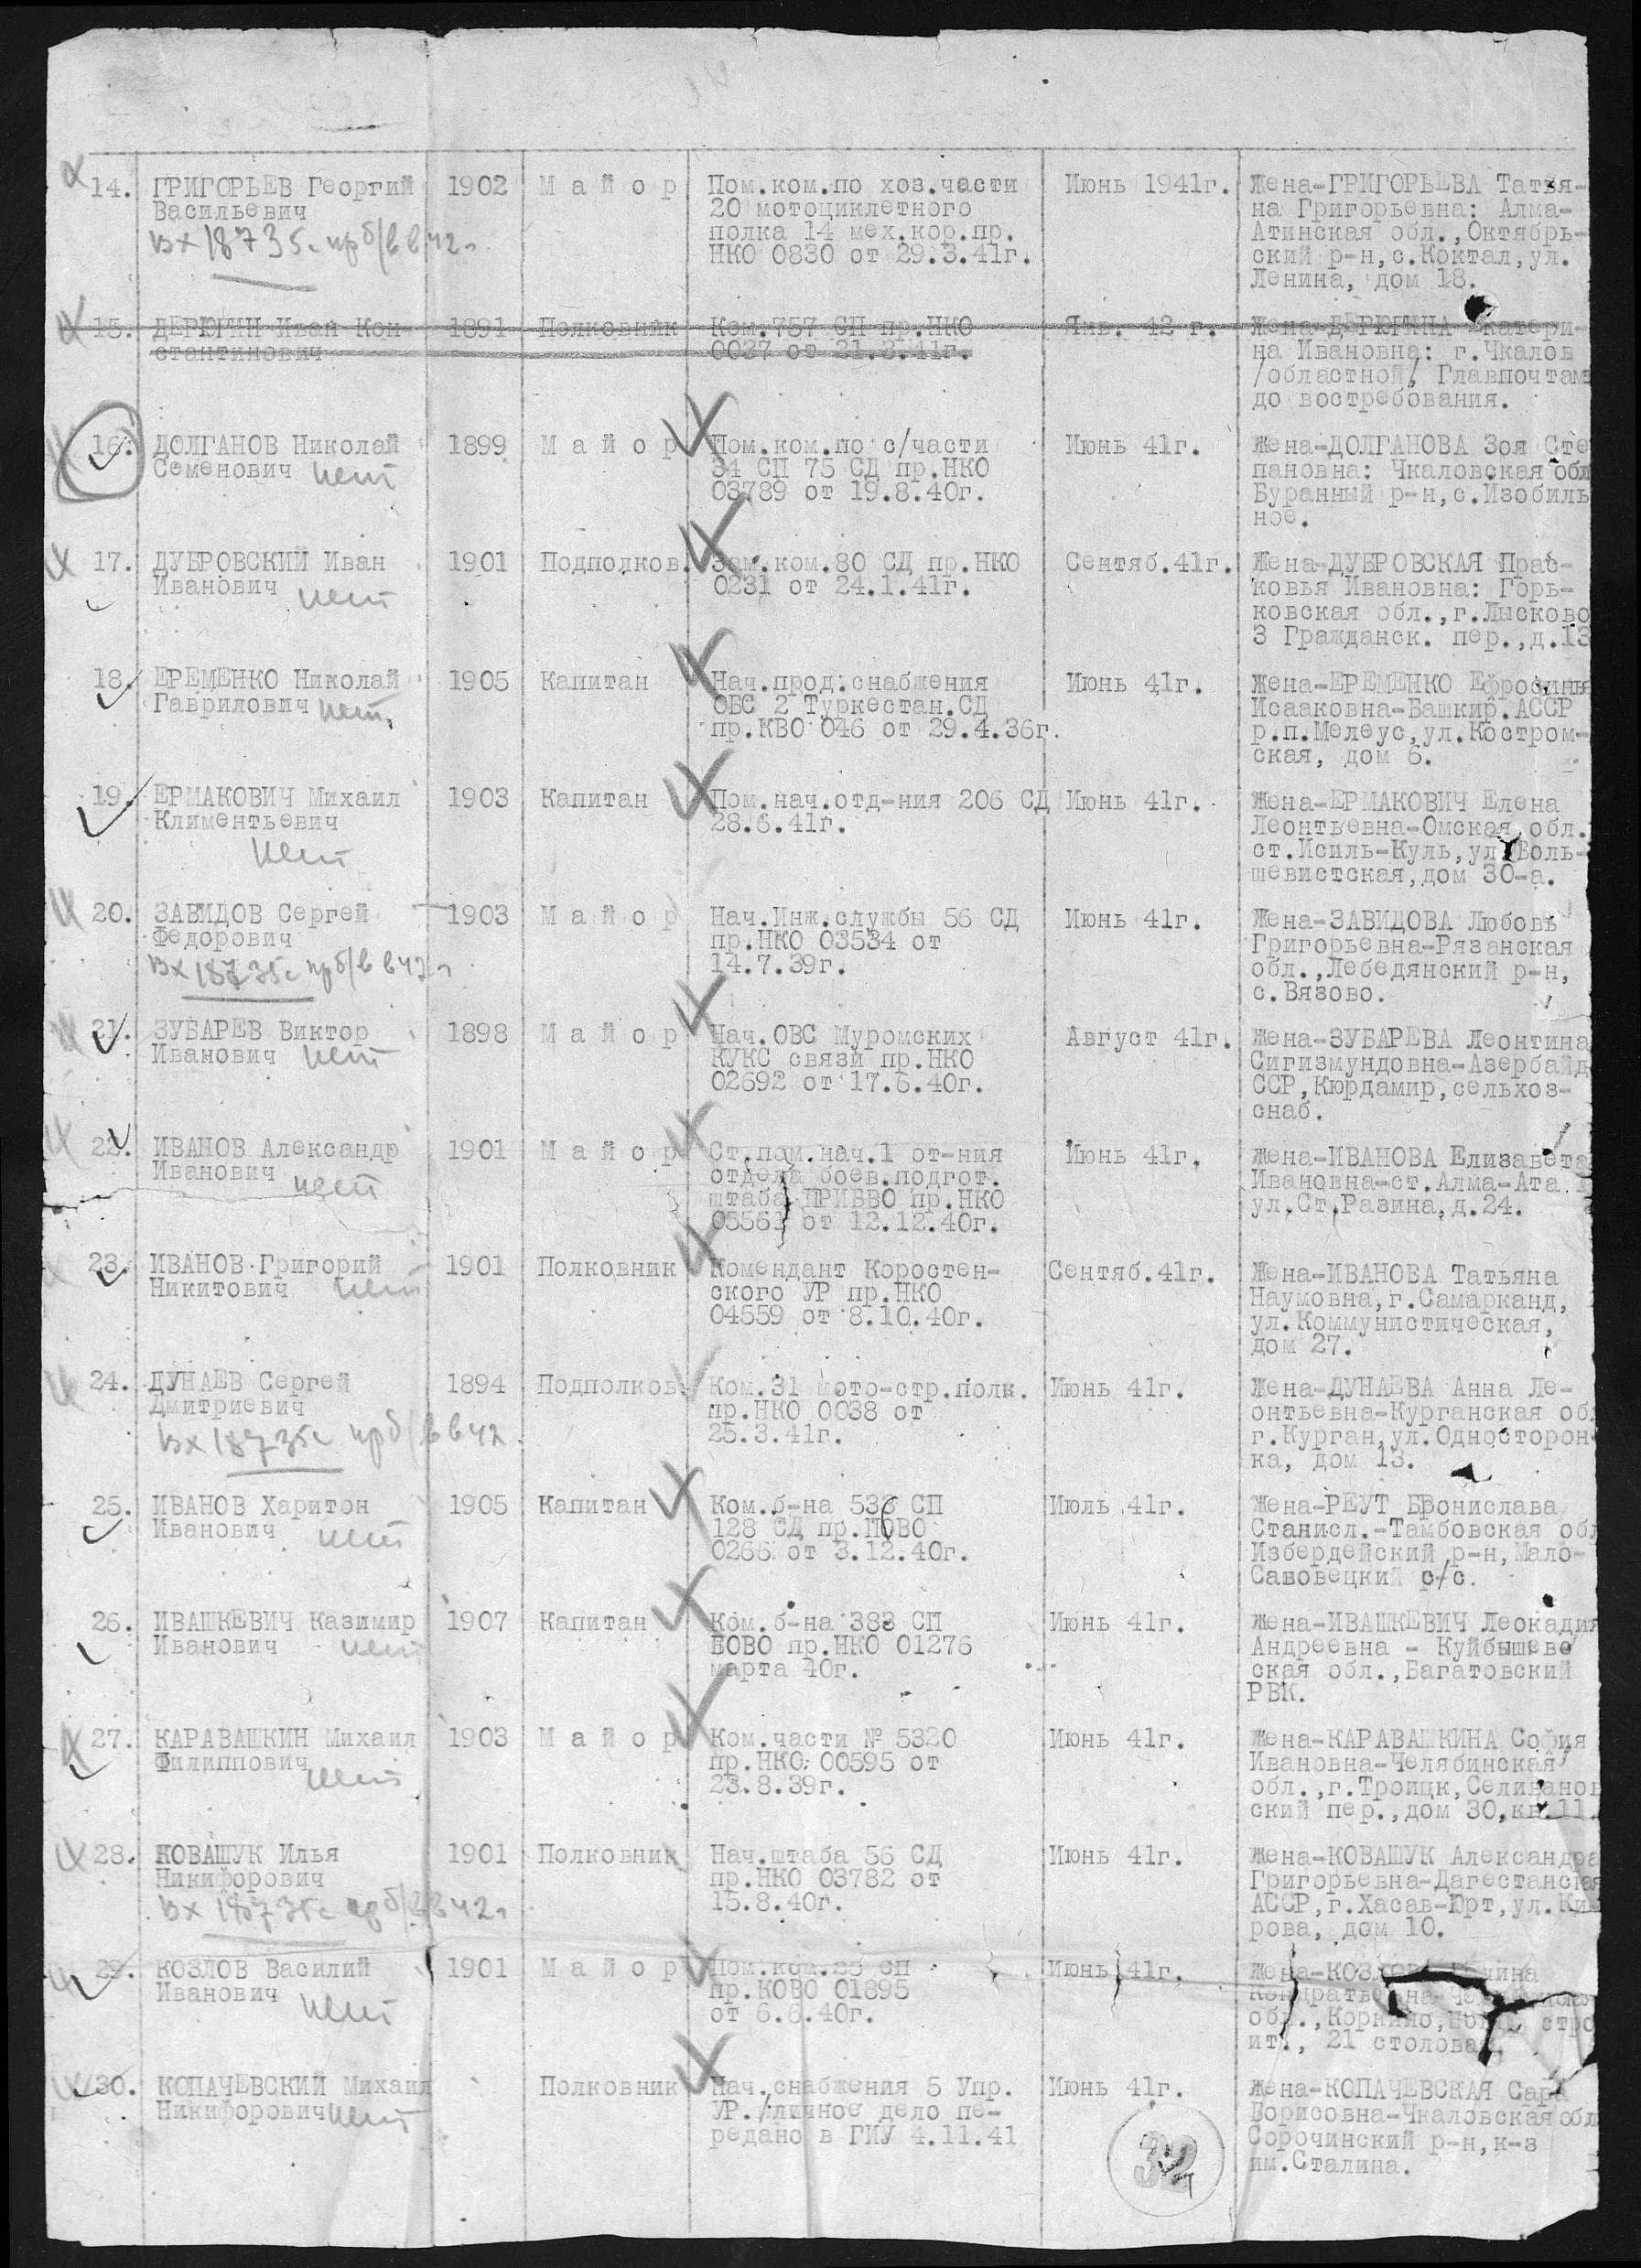 14. ГРИГОРЬЕВ Георгий 1902 М а й о р Пом.ком.по хоз.части Июнь 1941г. Жена-ГРИГОРЬЕВА Татья-
Васильевич 20 мотоциклетного на Григорьевна: Алма-
вх 18735с полка 14 мех.кор.пр. Атинская обл.,Октябрь-
НКО 0830 от 29.3.41г. ский р-н,с.Коктал,ул.
Ленина, дом 18.
15. ДЕРЮГИН Иван Кон 1891 Полковник Ком.757 СП пр.НКО Янв. 42 г. Жена-ДЕРЮГИНА Катери-
стантинович 0037 от 21.3.41г. на Ивановна: г.Чкалов
/областной/ Главпочтамт
до востребования.
16. ДОЛГАНОВ Николай 1899 М а й о р Пом.ком.по с/части Июнь 41г. Жена-ДОЛГАНОВА Зоя Сте
Семенович нет 34 СП 75 СД пр.НКО пановна: Чкаловская обл
03789 от 19.8.40г. Буранный р-н,с.Изобиль
ное.
17. ДУБРОВСКИЙ Иван 1901 Подполков. Зам.ком.80 СД пр.НКО Сентяб.41г. Жена-ДУБРОВСКАЯ Прас-
Иванович нет 0231 от 24.1.41г. ковья Ивановна: Горь-
ковская обл.,г.Лысково
3 Гражданск. пер.,д.13
18. ЕРЕМЕНКО Николай 1905 Капитан Нач.прод.снабжения Июнь 41г. Жена-ЕРЕМЕНКО Ефросинья
Гаврилович нет ОБС 2 Туркестан.СД Исааковна-Башкир.АССР
пр.КВО 046 от 29.4.36г. р.п.Мелеус,ул.Костром-
ская, дом 6.
19. ЕРМАКОВИЧ Михаил 1903 Капитан Пом.нач.отд-ния 206 СД Июнь 41г. Жена-ЕРМАКОВИЧ Елена
Климентьевич 28.6.41г. Леонтьевна-Омская обл.
нет ст.Исиль-Куль,ул.Боль-
шевистская,дом 30-а.
20. ЗАВИДОВ Сергей 1903 М а й о р Нач.Инж.службы 56 СД Июнь 41г. Жена-ЗАВИДОВА Любовь
Федорович пр.НКО 03534 от Григорьевна-Рязанская
вх 18735с 14.7.39г. обл.,Лебедянский р-н,
с.Вязово.
21. ЗУБАРЕВ Виктор 1898 М а й о р Нач.ОВС Муромских Август 41г. Жена-ЗУБАРЕВА Леонтина
Иванович нет КУКС связи пр.НКО Сигизмундовна-Азербайд
02692 от 17.6.40г. ССР,Кюрдамир,сельхоз-
снаб.
22. ИВАНОВ Александр 1901 М а й о р Ст.пом.нач.1 от-ния Июнь 41г. Жена-ИВАНОВА Елизавета
Иванович нет отдела боев.подгот. Ивановна-ст.Алма-Ата
штаба ПРИБВО пр.НКО ул.Ст.Разина,д.24.
05561 от 12.12.40г.
23. ИВАНОВ Григорий 1901 Полковник Комендант Коростен- Сентяб.41г. Жена-ИВАНОВА Татьяна
Никитович нет ского УР пр.НКО Наумовна,г.Самарканд,
04559 от 8.10.40г. ул.Коммунистическая,
дом 27.
24. ДУНАЕВ Сергей 1894 Подполков. Ком.31 мото-стр.полк. Июнь 41г. Жена-ДУНАЕВА Анна Ле-
Дмитриевич пр.НКО 0038 от онтьевна-Курганская об
вх 18735с 25.3.41г. г.Курган,ул.Односторон-
ка, дом 13.
25. ИВАНОВ Харитон 1905 Капитан Ком.б-на 533 СП Июль 41г. Жена-РЕУТ Бронислава
Иванович нет 128 СД пр.ПОВО Станисл.-Тамбовская об
0266 от 3.12.40г. Избердейский р-н,Мало-
Савовецкий с/с.
26. ИВАШКЕВИЧ Казимир 1907 Капитан Ком.б-на 383 СП Июнь 41г. Жена-ИВАШКЕВИЧ Леокадия
Иванович нет БОВО пр.НКО 01276 Андреевна - Куйбышевс
марта 40г. ская обл.,Багатовский
РВК.
27. КАРАВАШКИН Михаил 1903 М а й о р Ком.части № 5320 Июнь 41г. Жена-КАРАВАШКИНА София
Филиппович нет пр.НКО 00595 от Ивановна-Челябинская
23.8.39г. обл.,г.Троицк,Селиванов
ский пер.,дом 30,кв.11.
28. КОВАШУК Илья 1901 Полковник Нач.штаба 56 СД Июнь 41г. Жена-КОВАШУК Александра
Никифорович пр.НКО 03782 от Григорьевна-Дагестанская
вх 18735с 15.8.40г. АССР,г.Хасав-Юрт,ул.Ки
рова, дом 10.
29. КОЗЛОВ Василий 1901 М а й о р Пом.ком.25 СП Июнь 41г. Жена-
Иванович нет пр.КОВО 01895
от 6.6.40г. обл.,Коркино,
ит., 21 столовая.
30. КОПАЧЕВСКИЙ Михаил Полковник Нач.снабжения 5 Упр. Июнь 41г. Жена-КОПАЧЕВСКАЯ Сара
Никифорович нет УР./личное дело пе- Борисовна-Чкаловская обл
редано в ГИУ 4.11.41 Сорочинский р-н,к-з
им.Сталина.
32